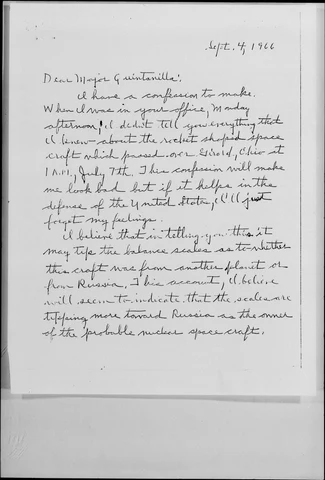 Sept. 4, 1966
Dear Major Quintanilla:
I have a confession to make.
When I was in your office, Monday
afternoon, I didn't tell you everything that
I knew about the rocket shaped space
craft which passed over Girard, Ohio at
1 A.M., July 7th. This confession will make
me look bad but if it helps in the
defense of the United States, I'll just
forget my feelings.
I believe that in telling you this it
may tip the balance scales as to whether
this craft was from another planet or
from Russia. This account, I believe
will seem to indicate that the scales are
tipping more toward Russia as the owner
of the probable nuclear space craft.